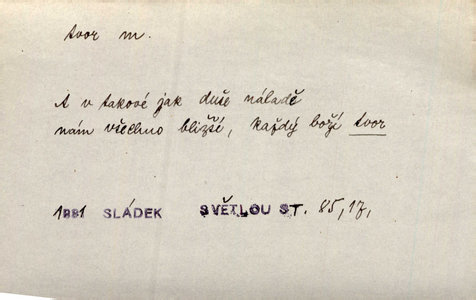 tvor m.
A v takové jak duše náladě
nám všechno bližší, každý boží tvor
1981 SLÁDEK SVĚTLOU ST. 85, 17,